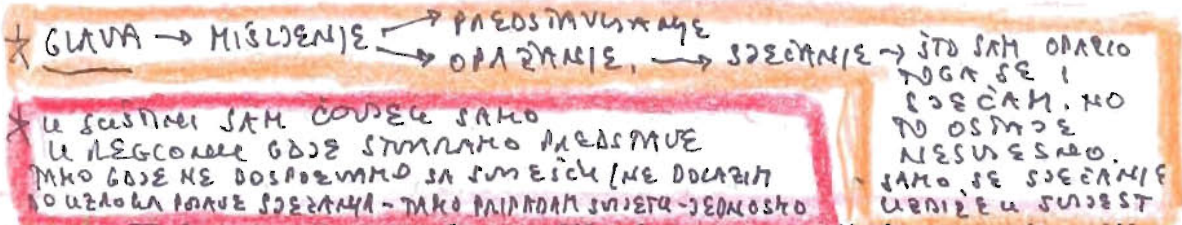 * GLAVA → MIŠLJENJE → PREDSTAVLJANJE
→ OPAŽANJE, → SJEĆANJE → ŠTO SAM OPAZIO
TOGA SE I
SJEĆAM. NO
TO OSTAJE
NESVJESNO.
SAMO SE SJEĆANJE
UZDIŽE U SVIJEST
* U SUŠTINI SAM ČOVJEK SAMO
U REGIONU GDJE STVARAMO PREDSTAVE
TAMO GDJE NE DOSPIJEVAMO SA SVIJEŠĆU / NE DOLAZIM
DO UZROKA POJAVE SJEĆANJA - TAMO PRIPADAM SVIJETU - JEDNOSMO